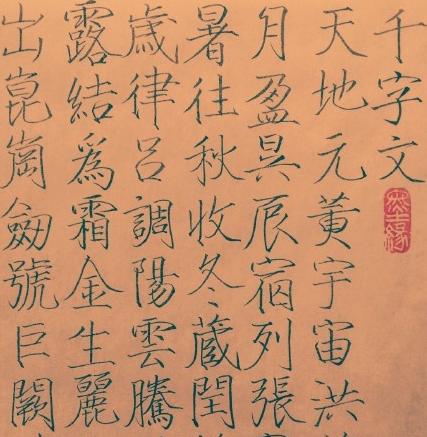 千字文
天地元黃宇宙洪
月盈昃辰宿列張
暑往秋收冬藏閏
歲律呂調陽雲騰
露結爲霜金生麗
出崑崗劍號巨闕